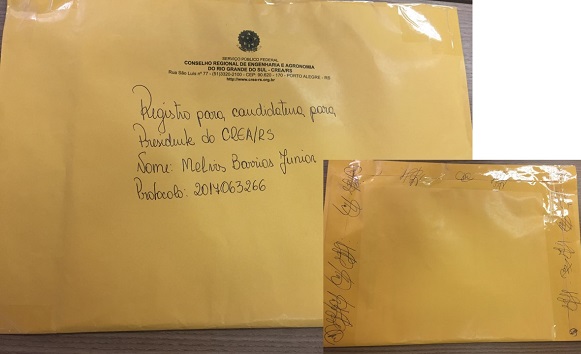 SERVIÇO PÚBLICO FEDERAL
CONSELHO REGIONAL DE ENGENHARIA E AGRONOMIA
DO RIO GRANDE DO SUL - CREA/RS
Rua São Luis nº 77 - (51)3320-2100 - CEP: 90.620 - 170 - PORTO ALEGRE - RS
http://www.crea-rs.org.br
Registro para candidatura para
Presidente do CREA/RS
Nome: Melvis Barrios Junior
Protocolo: 2017063266